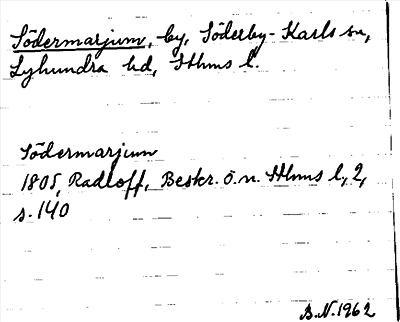 Södermarjum, by, Söderby-Karls sn,
Lyhundra hd, Sthms l.
Södermarjum
1805, Radloff, Beskr. ö. n. Sthms l, 2,
s. 140
B.N. 1962